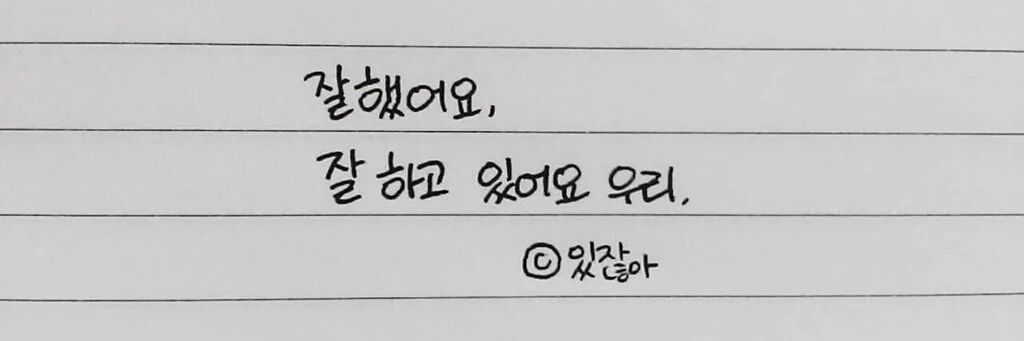 잘했어요,
잘 하고 있어요 우리.
©있잖아